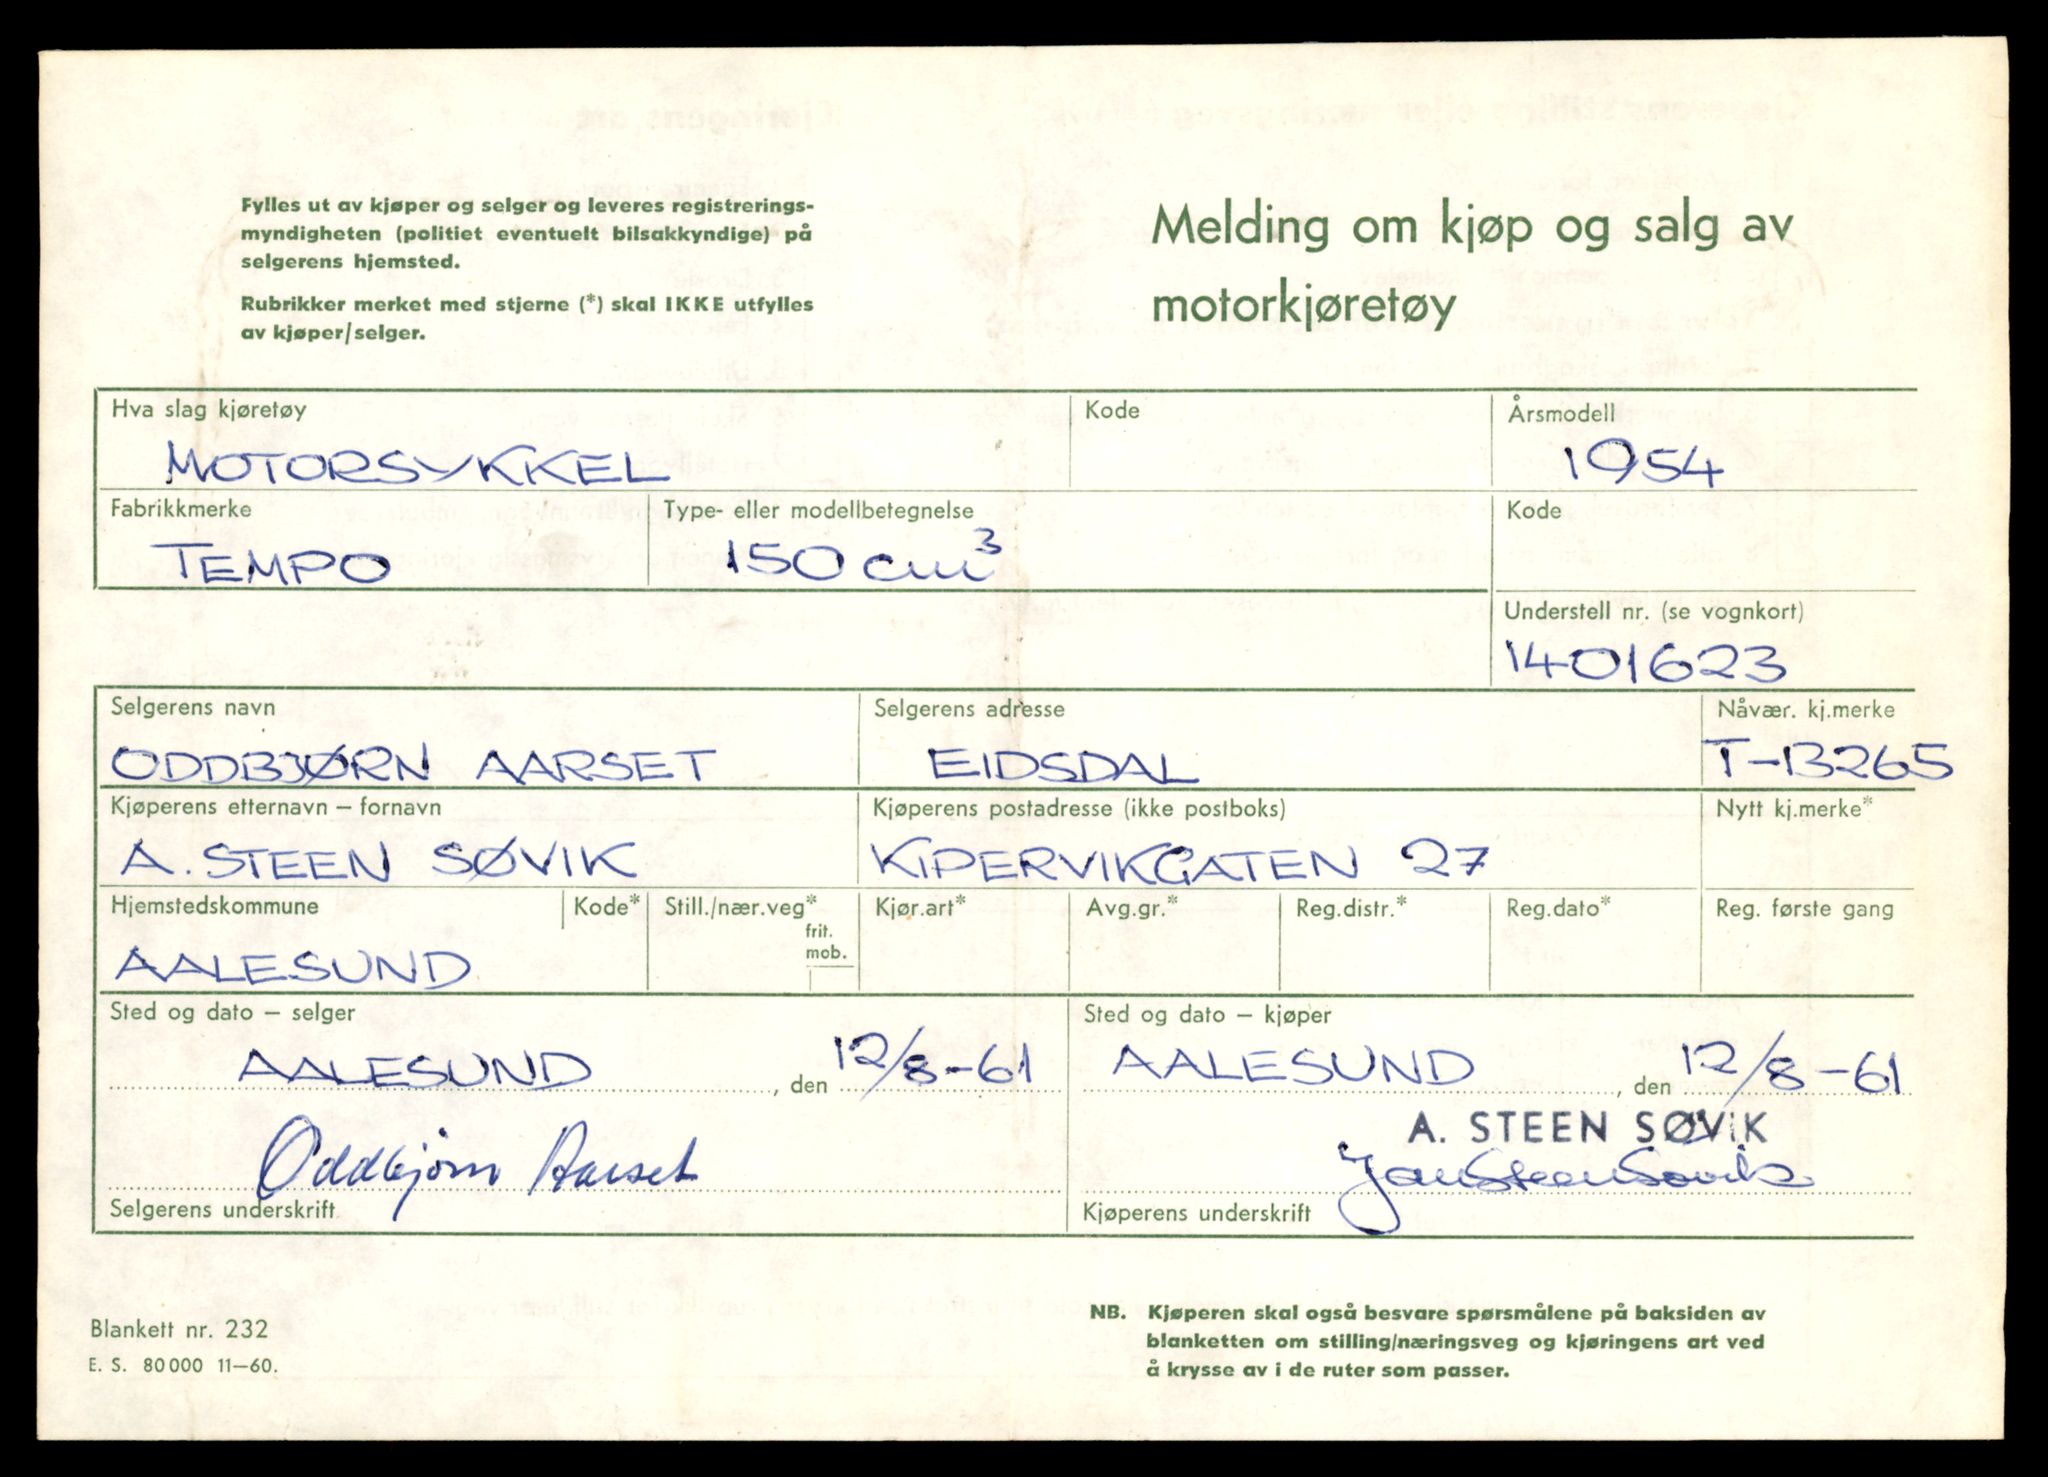 Fylles ut av kjøper og selger og leveres registrerings-
myndigheten (politiet eventuelt bilsakkyndige) på
selgerens hjemsted.
Rubrikker merket med stjerne (*) skal IKKE utfylles
av kjøper/selger.
Melding om kjøp og salg av
motorkjøretøy
Hva slag kjøretøy Kode Årsmodell
MOTORSYKKEL 1954
Fabrikkmerke Type- eller modellbetegnelse Kode
TEMPO 150 cm³
Understell nr. (se vognkort)
1401623
Selgerens navn Selgerens adresse Nåvær. kj.merke
ODDBJØRN AARSET EIDSDAL T-13265
Kjøperens etternavn – fornavn Kjøperens postadresse (ikke postboks) Nytt kj.merke*
A. STEEN SØVIK KIPERVIKGATEN 27
Hjemstedskommune Kode* Still./nær.veg* Kjør.art* Avg.gr.* Reg.distr.* Reg.dato* Reg. første gang
frit.
mob.
AALESUND
Sted og dato – selger Sted og dato – kjøper
AALESUND, den 12/8-61 AALESUND, den 12/8-61
A. STEEN SØVIK
Oddbjörn Aarset Jan Steen Søvik
Selgerens underskrift Kjøperens underskrift
NB. Kjøperen skal også besvare spørsmålene på baksiden av
blanketten om stilling/næringsveg og kjøringens art ved
å krysse av i de ruter som passer.
Blankett nr. 232
E. S. 80000 11–60.